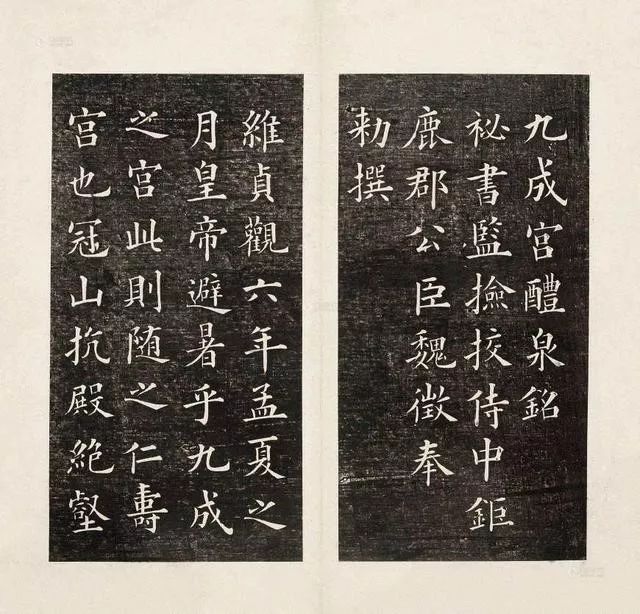 九成宫醴泉銘
秘書監撿挍侍中鉅
鹿郡公臣魏徵奉
勅撰
維貞觀六年孟夏之
月皇帝避暑乎九成
之宫此則随之仁壽
宫也冠山抗殿絶壑